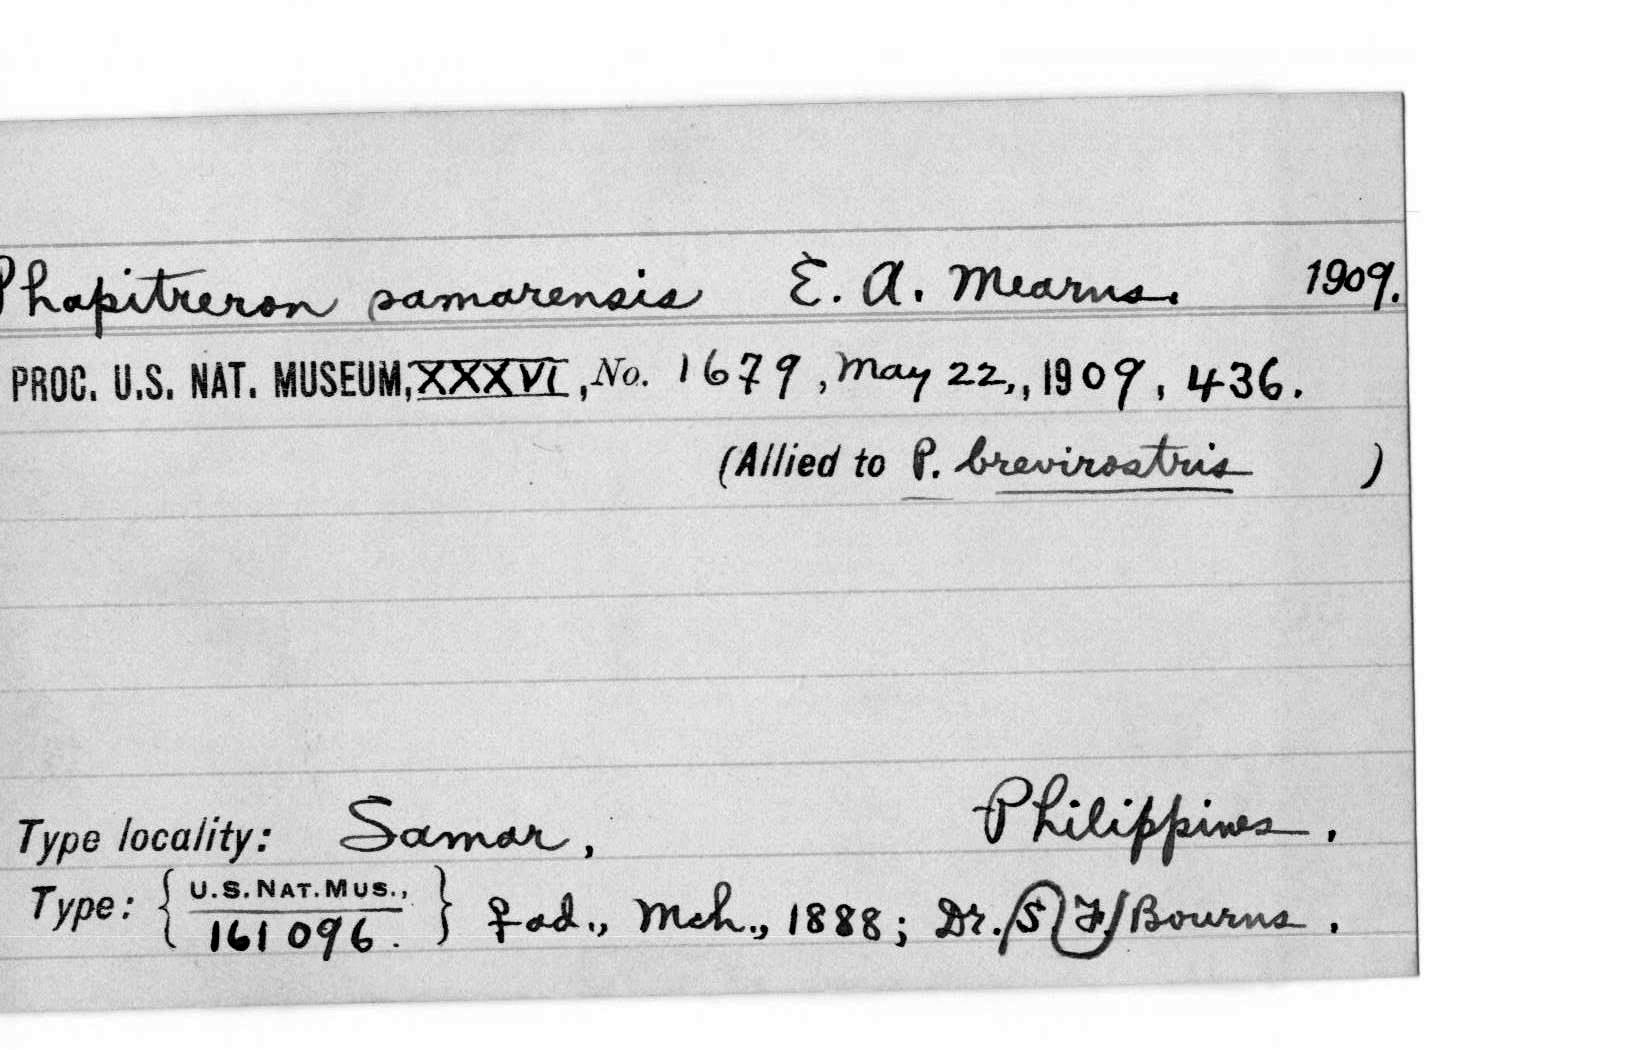 Phapitreron samarensis E. A. Mearns. 1909.
PROC. U.S. NAT. MUSEUM, XXXVI, No. 1679, May 22, , 1909, 436.
(Allied to P. brevirostris )
Type locality: Samar, Philippines.
Type: { U.S. NAT. MUS., } ♀ ad., Mch., 1888; Dr. (S F.) Bourns.
161096.